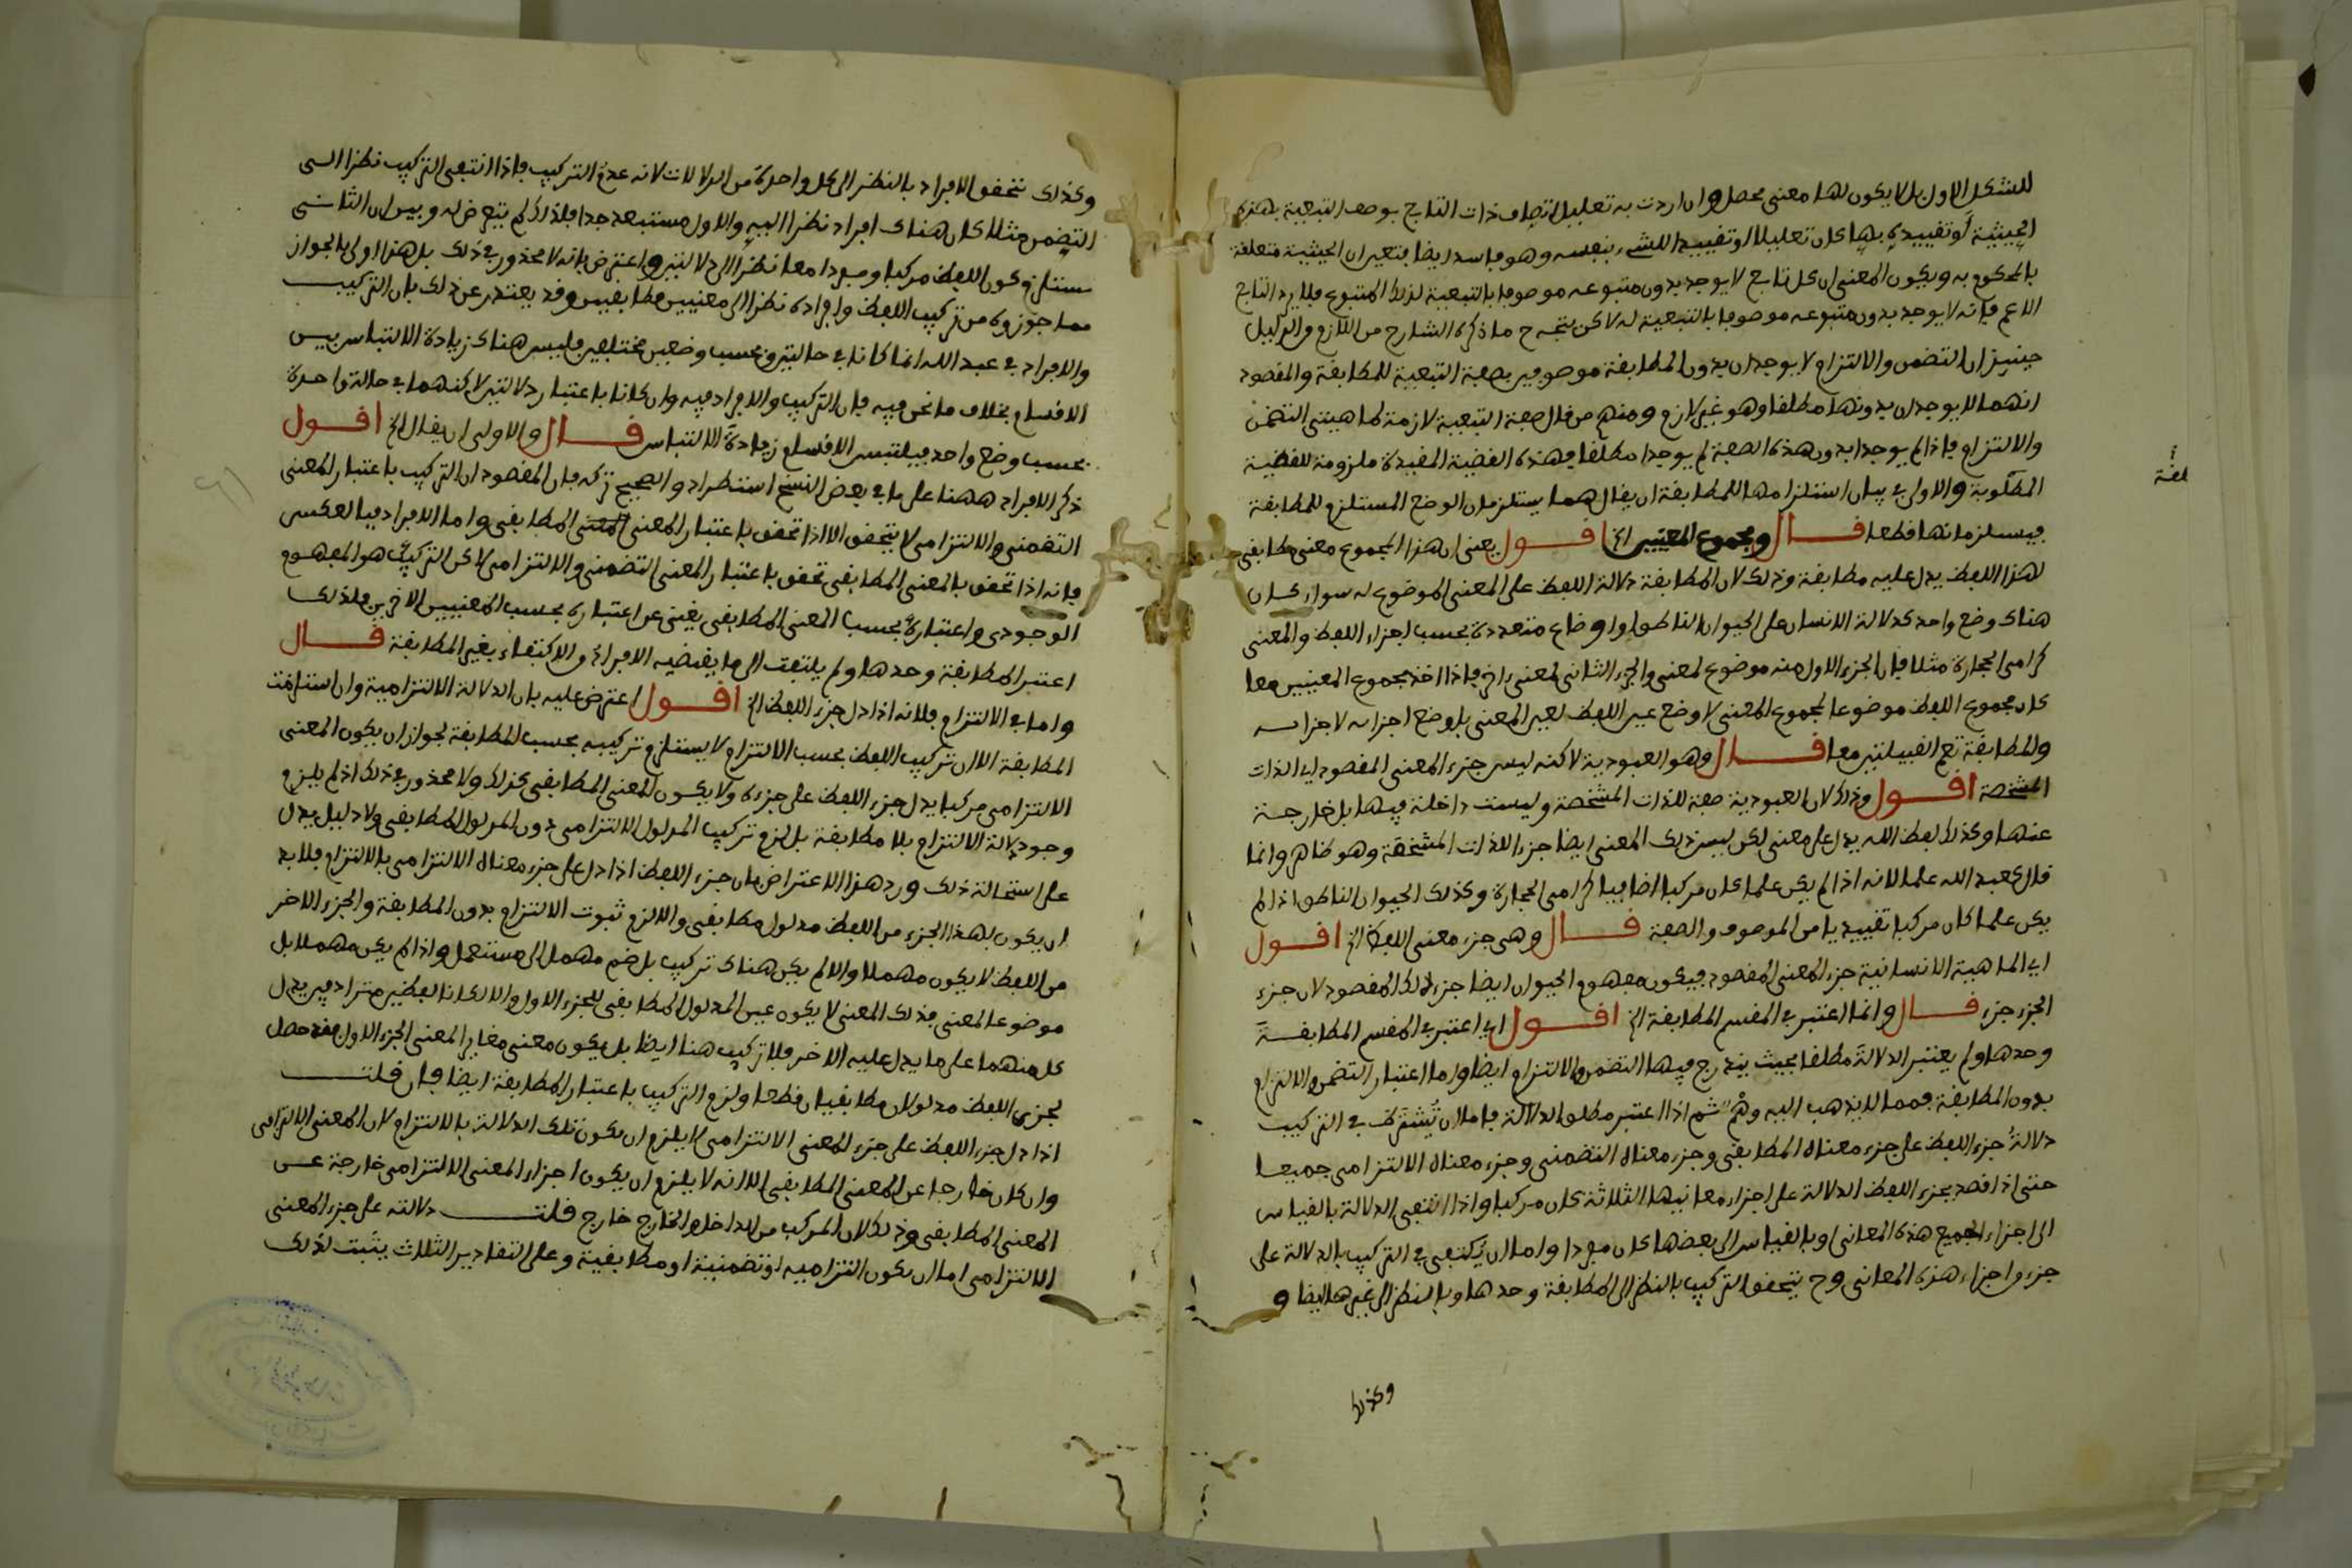 للشكل الاول بل لا يكون لها معنى محصل وان اردت به تعليل اتصاف ذات التابع بوصف التبعية بهذه
الحيثية او تقييده بها كان تعليلا او تقييدا للشيء بنفسه وهو فاسد ايضا فتعين ان الحيثية متعلقة
بالمحكوم به ويكون المعنى ان كل تابع لا يوجد بدون متبوعه موصوفا بالتبعية لذلك المتبوع فلا يرد التابع
الاعم فانه لا يوجد بدون متبوعه موصوفا بالتبعية له لاكن يتجه ح ما ذكره الشارح من اللازم من الدليل
حينئذ ان التضمن والالتزام لا يوجدان بدون المطابقة موصوفين بصفة التبعية للمطابقة والمقصود
انهما لا يوجدان بدونها مطلقا وهو غير لازم ومنهم من قال صفة التبعية لازمة لماهيتي التضمن
والالتزام فاذا لم يوجدا بدون هذه الصفة لم يوجدا مطلقا فهذه القضية المقيدة ملزومة للقضية
المطلوبة والاولى في بيان استلزامهما للمطابقة ان يقال هما يستلزمان الوضع المستلزم للمطابقة
فيستلزمانها قطعا قال ومجموع المعنيين الخ اقول يعنى ان هذا المجموع معنى مطابقي
لهذا اللفظ يدل عليه مطابقة وذلك لان المطابقة دلالة اللفظ على المعنى الموضوع له سواء كان
هناك وضع واحد كدلالة الانسان على الحيوان الناطق او اوضاع متعددة بحسب اجزاء اللفظ والمعنى
كرامى الحجارة مثلا فان الجزء الاول منه موضوع لمعنى والجزء الثاني لمعنى اخر فاذا اخذ مجموع المعنيين معا
كان مجموع اللفظ موضوعا لمجموع المعنى لا وضع عين اللفظ لعين المعنى بل وضع اجزائه لاجزائه
والمطابقة تعم القبيلتين معا قال وهو العبودية لاكنه ليس جزء المعنى المقصود اى الذات
المشخصة اقول وذلك لان العبودية صفة للذات المشخصة وليست داخلة فيها بل خارجة
عنها وكذلك لفظ الله يدل على معنى لكن ليس ذلك المعنى ايضا جزء الذات المشخصة وهو ظاهر وانما
قال كعبد الله علما لانه اذا لم يكن علما كان مركبا اضافيا كرامى الحجارة وكذلك الحيوان الناطق اذا لم
يكن علما كان مركبا تقييديا من الموصوف والصفة قال وهى جزء معنى اللفظ الخ اقول
اى الماهية الانسانية جزء المعنى المقصود فيكون مفهوم الحيوان ايضا جزء لذلك المقصود لان جزء
الجزء جزء قال وانما اعتبر في المقسم المطابقة الخ اقول اى اعتبر في المقسم المطابقة
وحدها ولم يعتبر الدلالة مطلقا بحيث يندرج فيها التضمن والالتزام ايضا واما اعتبار التضمن والالتزام
بدون المطابقة فمما لا يذهب اليه وهم ثم اذا اعتبر مطلق الدلالة فاما ان يشترط في التركيب
دلالة جزء اللفظ على جزء معناه المطابقى وجزء معناه التضمنى وجزء معناه الالتزامى جميعا
حتى اذا قصد بجزء اللفظ الدلالة على اجزاء معانيها الثلاثة كان مركبا واذا انتفى الدلالة بالقياس
الى اجزاء جميع هذه المعانى او بالقياس الى بعضها كان مفردا واما ان يكتفى في التركيب بالدلالة على
جزء واجزاء هذه المعانى وح يتحقق التركيب بالنظر الى المطابقة وحدها وبالنظر الى غيرها ايضا و
وكذلك
وكذلك تتحقق الافراد بالنظر الى كل واحدة من الدلالات لانه عدم التركيب فاذا انتفى التركيب نظرا الى
التضمن مثلا كان هناك افراد نظرا اليه والاول مستبعد جدا فلذلك لم يتعرض له وبين ان الثانى
يستلزم كون اللفظ مركبا ومفردا معا نظرا الى دلالتين واعترض بانه لا محذور في ذلك بل هذا اولى بالجواز
مما جوزوه من تركيب اللفظ وافراده نظرا الى معنيين مطابقيين وقد يعتذر عن ذلك بان التركيب
والافراد في عبد الله انما كانا في حالتين وبحسب وضعين مختلفين فليس هناك زيادة الالتباس بين
الاقسام بخلاف ما نحن فيه فان التركيب والافراد فيه وان كانا باعتبار دلالتين لاكنهما في حالة واحدة
بحسب وضع واحد فيلتبس الاقسام زيادة الالتباس قال والاولى ان يقال الخ اقول
ذكر الافراد ههنا على ما في بعض النسخ استطراد والصحيح تركه فان المقصود ان التركيب باعتبار المعنى
التضمنى والالتزامى لا يتحقق الا اذا تحقق باعتبار المعنى المطابقى واما الافراد فبالعكس
فانه اذا تحقق بالمعنى المطابقى تحقق باعتبار المعنى التضمنى والالتزامى لاكن التركيب هو المفهوم
الوجودى واعتباره بحسب المعنى المطابقى يغنى عن اعتباره بحسب المعنيين الاخرين فلذلك
اعتبر المطابقة وحدها ولم يلتفت الى ما يقتضيه الافراد والاكتفاء بغير المطابقة قال
واما في الالتزام فلانه اذا دل جزء اللفظ الخ اقول اعترض عليه بان الدلالة الالتزامية وان استلزمت
المطابقة الا ان تركيب اللفظ بحسب الالتزام لا يستلزم تركيبه بحسب المطابقة لجواز ان يكون المعنى
الالتزامى مركبا يدل جزء اللفظ على جزءه ولا يكون المعنى المطابقى كذلك ولا محذور في ذلك اذ لم يلزم
وجود دلالة الالتزام بلا مطابقة بل لزم تركيب المدلول الالتزامى دون المدلول المطابقى ولا دليل يدل
على استحالة ذلك ورد هذا الاعتراض بان جزء اللفظ اذا دل على جزء معناه الالتزامى بالالتزام فلا بد
ان يكون لهذا الجزء من اللفظ مدلول مطابقى والا لزم ثبوت الالتزام بدون المطابقة والجزء الاخر
من اللفظ لا يكون مهملا والا لم يكن هناك تركيب بل ضم مهمل الى مستعمل واذا لم يكن مهملا بل
موضوعا لمعنى فذلك المعنى لا يكون عين المدلول المطابقى للجزء الاول والا لكانا لفظين مترادفين يدل
كل منهما على ما يدل عليه الاخر فلا تركيب هنا ايضا بل يكون معنى مغايرا لمعنى الجزء الاول فقد حصل
لجزءى اللفظ مدلولان مطابقيان قطعا ولزم التركيب باعتبار المطابقة ايضا فان قلت
اذا دل جزء اللفظ على جزء المعنى الالتزامى لا يلزم ان يكون تلك الدلالة بالالتزام لان المعنى الالتزامى
وان كان خارجا عن المعنى المطابقى الا انه لا يلزم ان يكون اجزاء المعنى الالتزامى خارجة عن
المعنى المطابقى وذلك لان المركب من الداخل والخارج خارج قلت دلالته على جزء المعنى
الالتزامى اما ان يكون التزامية او تضمنية او مطابقية وعلى التقادير الثلاث يثبت لذلك